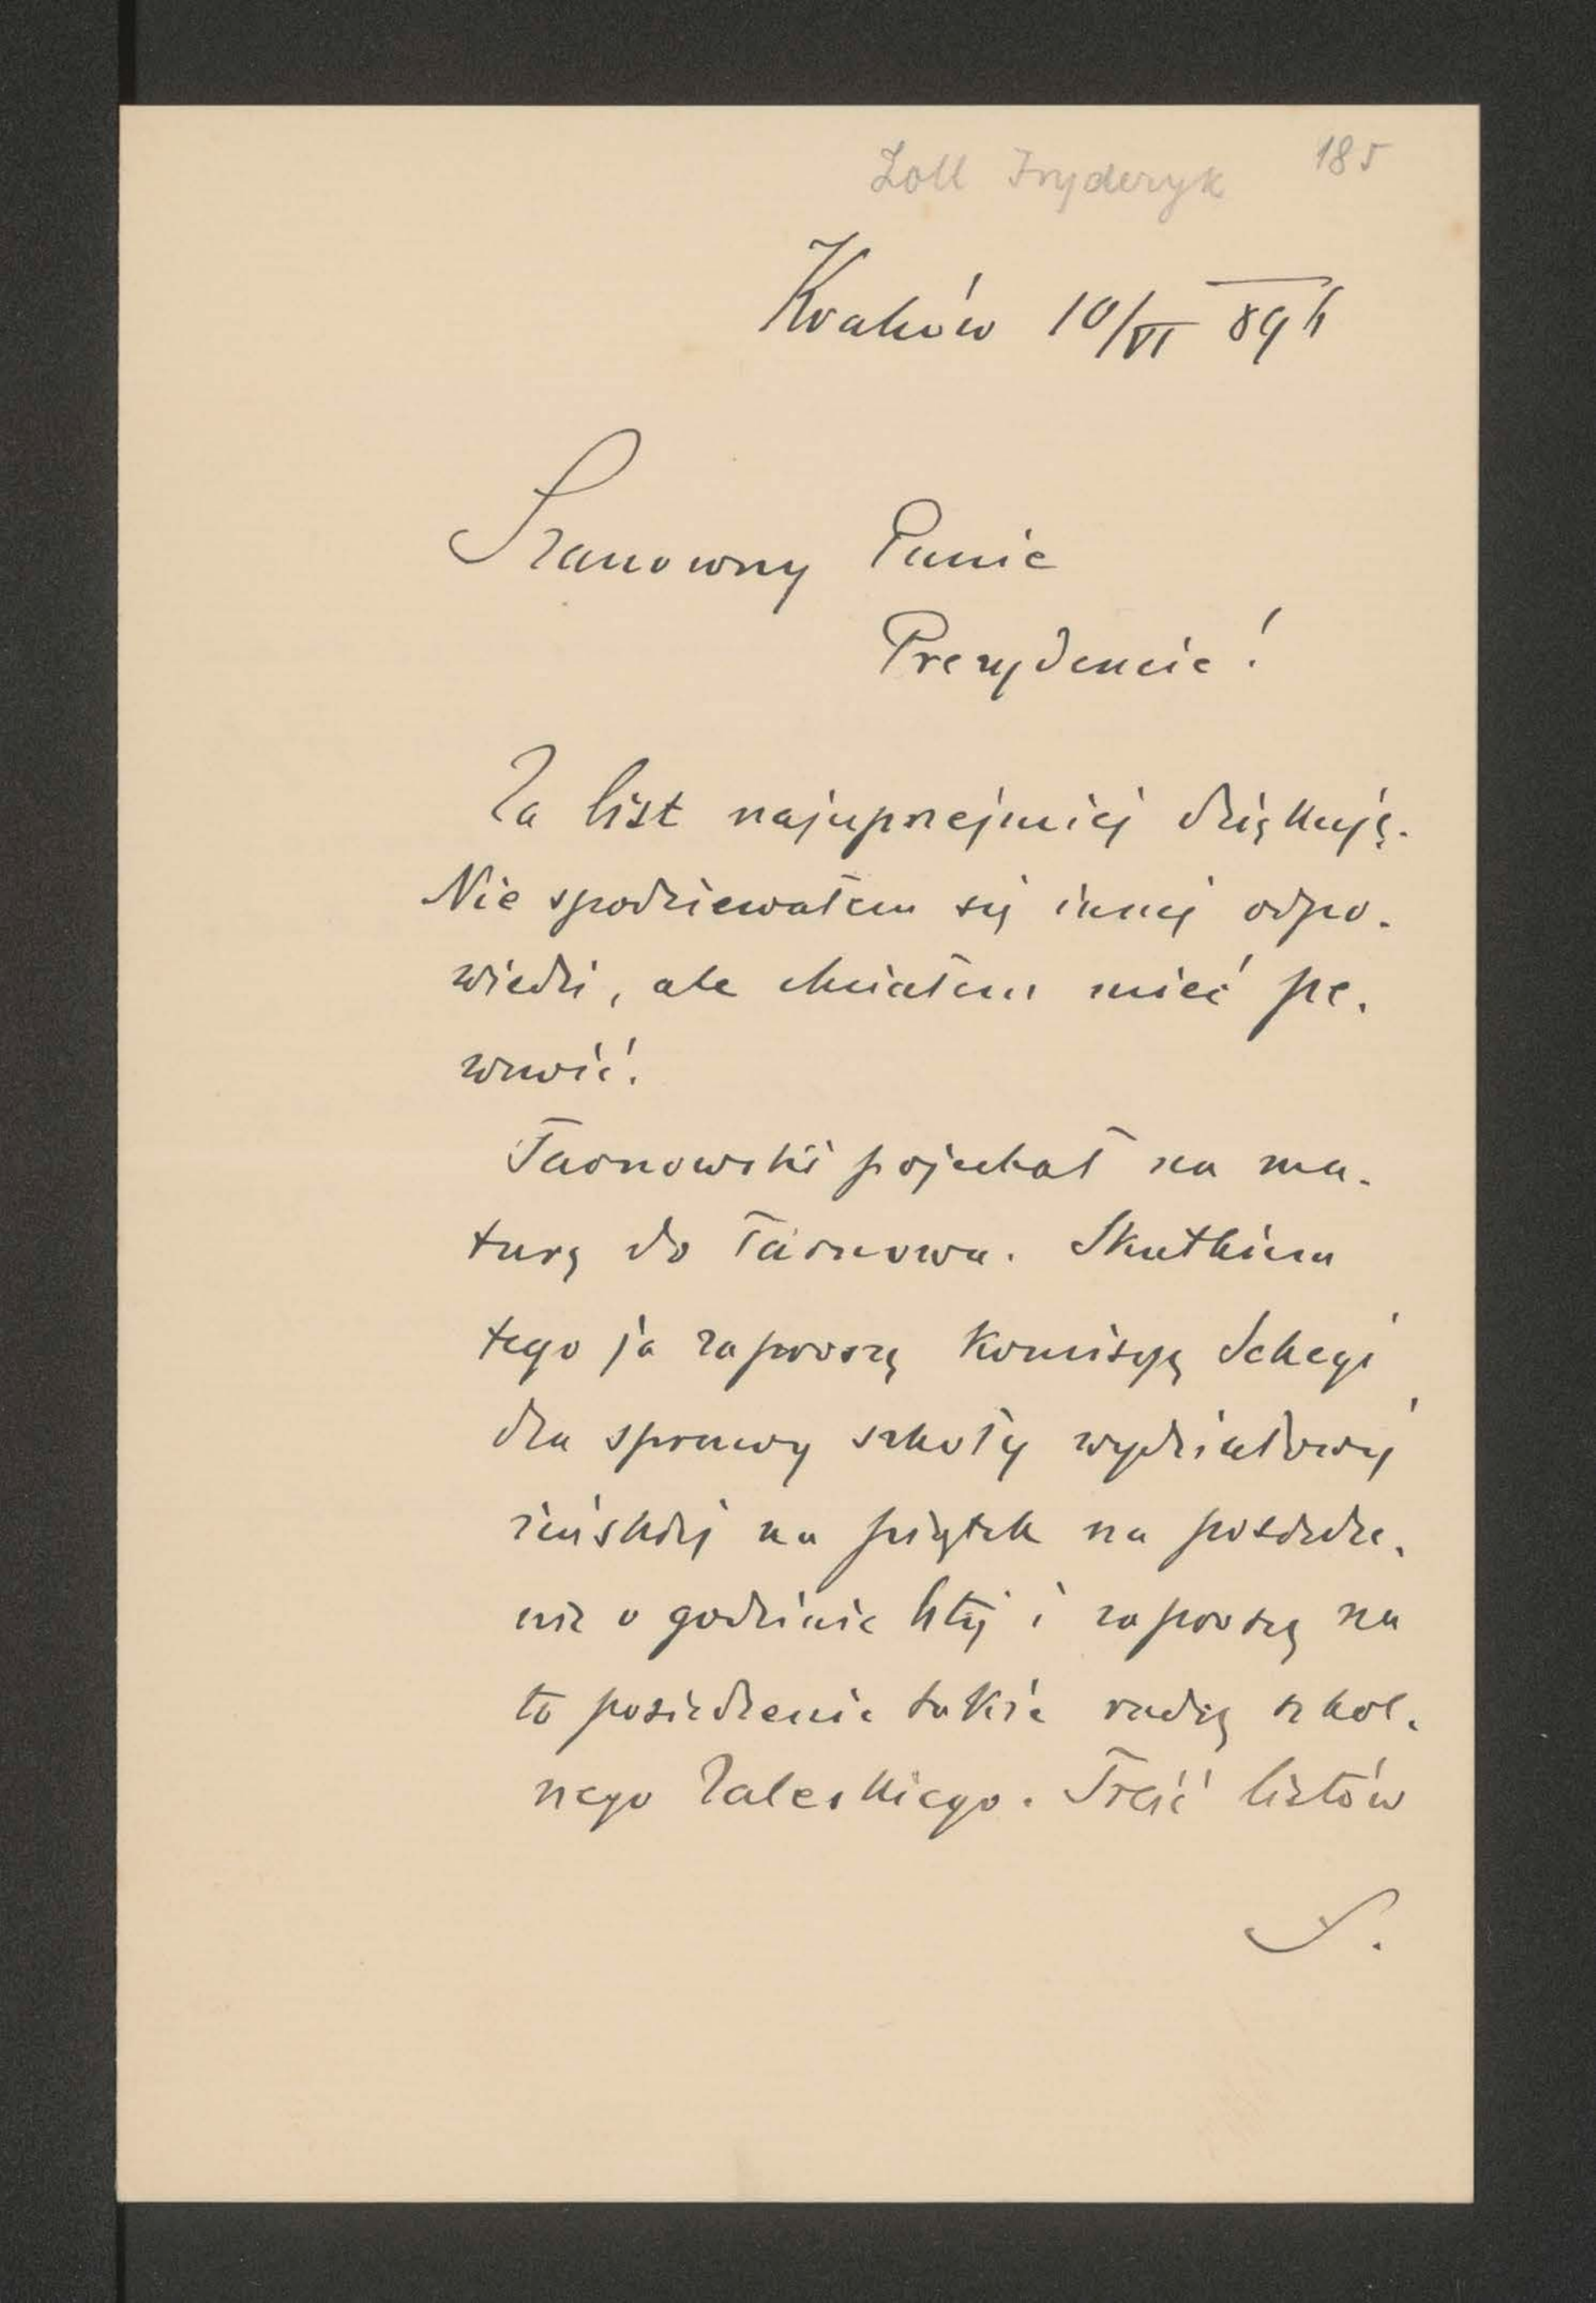 Zoll Fryderyk 185
Kraków 10/VI 896
Szanowny Panie
Prezydencie!
Za list najuprzejmiej dziękuję.
Nie spodziewałem się innej odpo-
wiedzi, ale chciałem mieć pe-
wność.
Tarnowski pojechał na ma-
turę do Tarnowa. Skutkiem
tego ja zaproszę Komisyę
dla sprawy szkoły wydziałowej
żeńskiej na piątek na posiedze-
nie o godzinie 6tej i zaproszę na
to posiedzenie także radcę szkol-
nego Zaleskiego. Treść listów